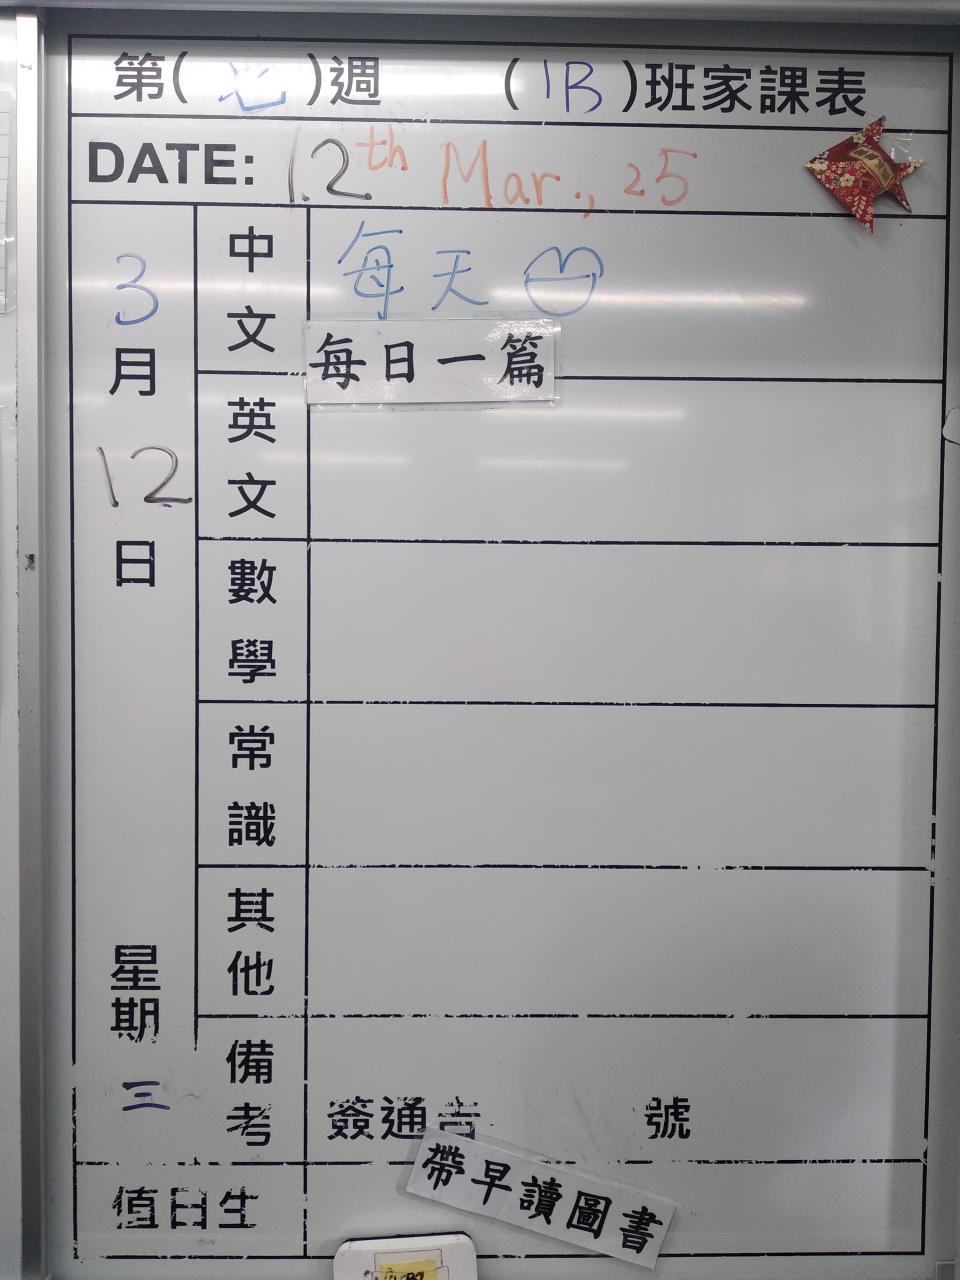 第( )週 (1B)班家課表
DATE: 12th Mar., 25
3月12日
星期三
中文
每天
每日一篇
英文
數學
常識
其他
備考
簽通告 號
值日生
帶早讀圖書